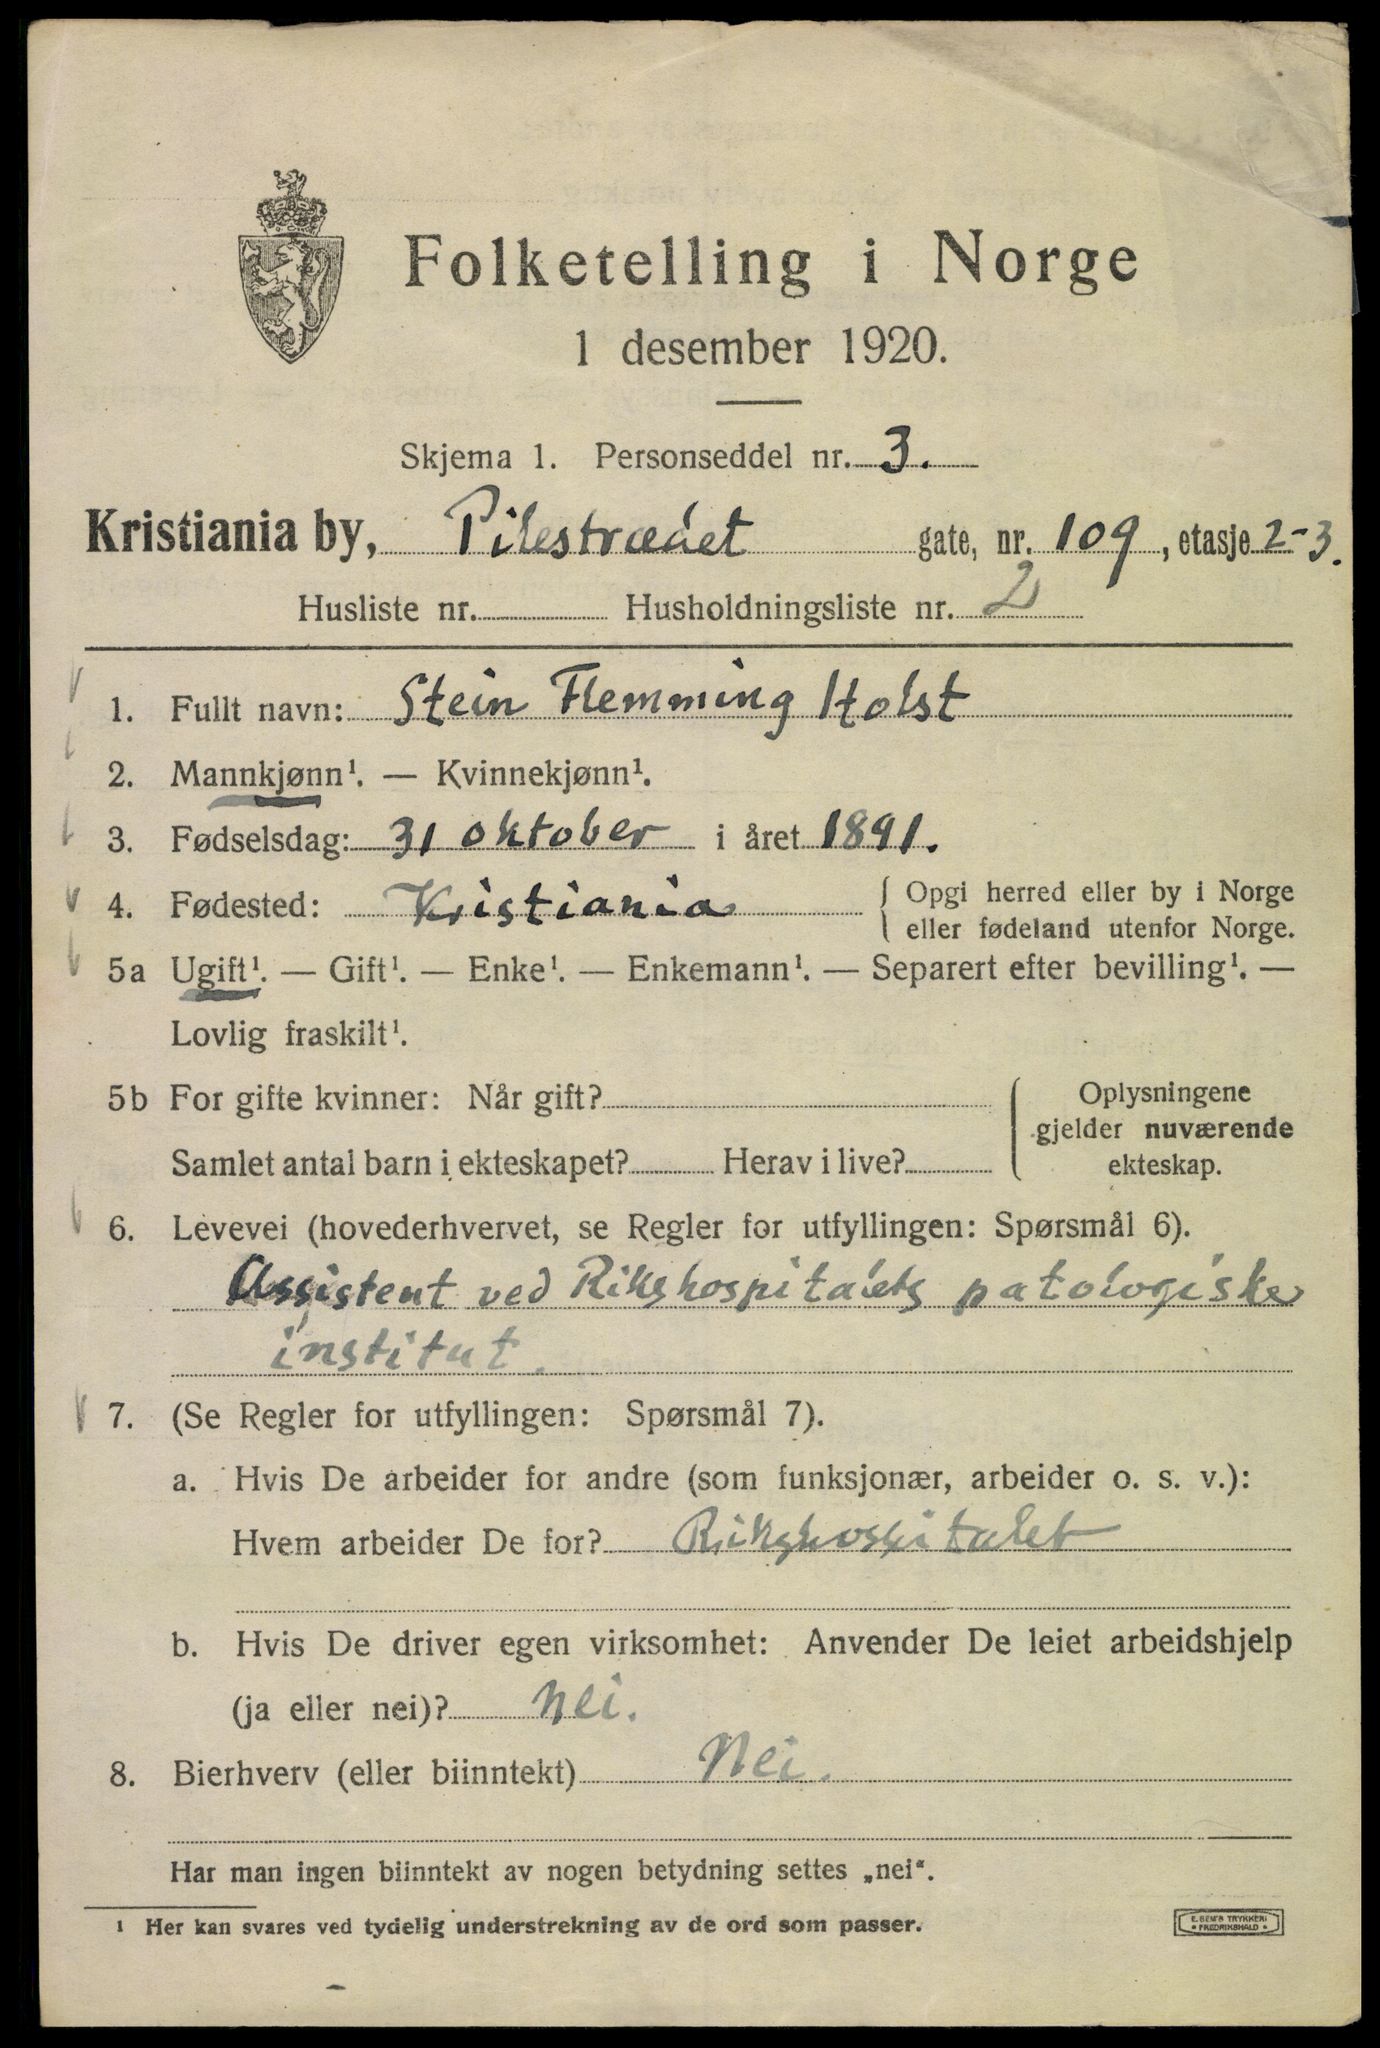 Folketelling i Norge
1 desember 1920.
Skjema 1. Personseddel nr. 3.
Kristiania by, Pilestrædet gate, nr. 109, etasje 2-3.
Husliste nr. Husholdningsliste nr. 2
1. Fullt navn: Stein Flemming Holst
2. Mannkjønn¹. — Kvinnekjønn¹.
3. Fødselsdag: 31 oktober i året 1891.
4. Fødested: Kristiania { Opgi herred eller by i Norge
eller fødeland utenfor Norge.
5a Ugift¹. — Gift¹. — Enke¹. — Enkemann¹. — Separert efter bevilling¹. —
Lovlig fraskilt¹.
5b For gifte kvinner: Når gift? Oplysningene
gjelder nuværende
Samlet antal barn i ekteskapet? Herav i live? ekteskap.
6. Levevei (hovederhvervet, se Regler for utfyllingen: Spørsmål 6).
Assistent ved Rikshospitalets patologiske
institut.
7. (Se Regler for utfyllingen: Spørsmål 7).
a. Hvis De arbeider for andre (som funksjonær, arbeider o. s. v.):
Hvem arbeider De for? Rikshospitalet
b. Hvis De driver egen virksomhet: Anvender De leiet arbeidshjelp
(ja eller nei)? nei.
8. Bierhverv (eller biinntekt) Nei.
Har man ingen biinntekt av nogen betydning settes „nei“.
¹ Her kan svares ved tydelig understrekning av de ord som passer.
E. SEM'S TRYKKERI
• FREDRIKSHALD •